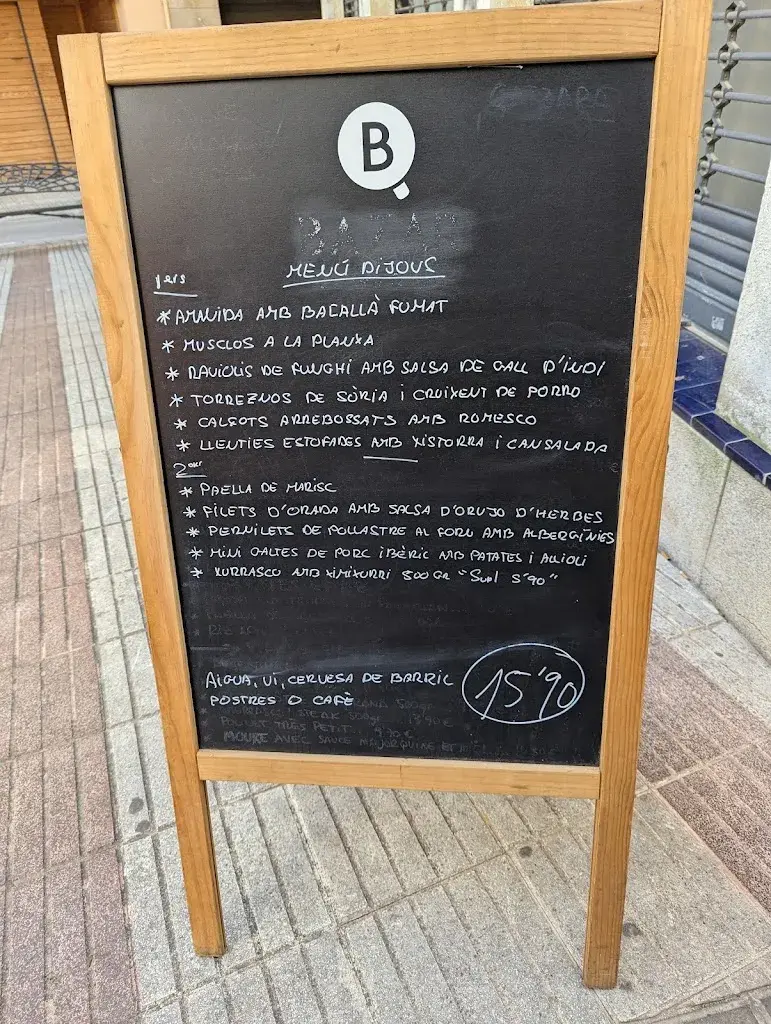 B
BAZAR
MENÚ DIJOUS
1ERS
* AMANIDA AMB BACALLÀ FUMAT
* MUSCLOS A LA PLANXA
* RAVIOLIS DE FUNGHI AMB SALSA DE GALL D'INDI
* TORREZNOS DE SÒRIA I CRUIXENT DE PORRO
* CALÇOTS ARREBOSSATS AMB ROMESCO
* LLENTIES ESTOFADES AMB XISTORRA I CANSALADA
2ons
* PAELLA DE MARISC
* FILETS D'ORADA AMB SALSA D'ORUJO D'HERBES
* PERNILETS DE POLLASTRE AL FORN AMB ALBERGÍNIES
* MINI GALTES DE PORC IBÈRIC AMB PATATES I ALLIOLI
* XURRASCO AMB XIMIXURRI 500 GR "Supl 5'90"
AIGUA, VI, CERVESA DE BARRIL
POSTRES O CAFÈ
15'90